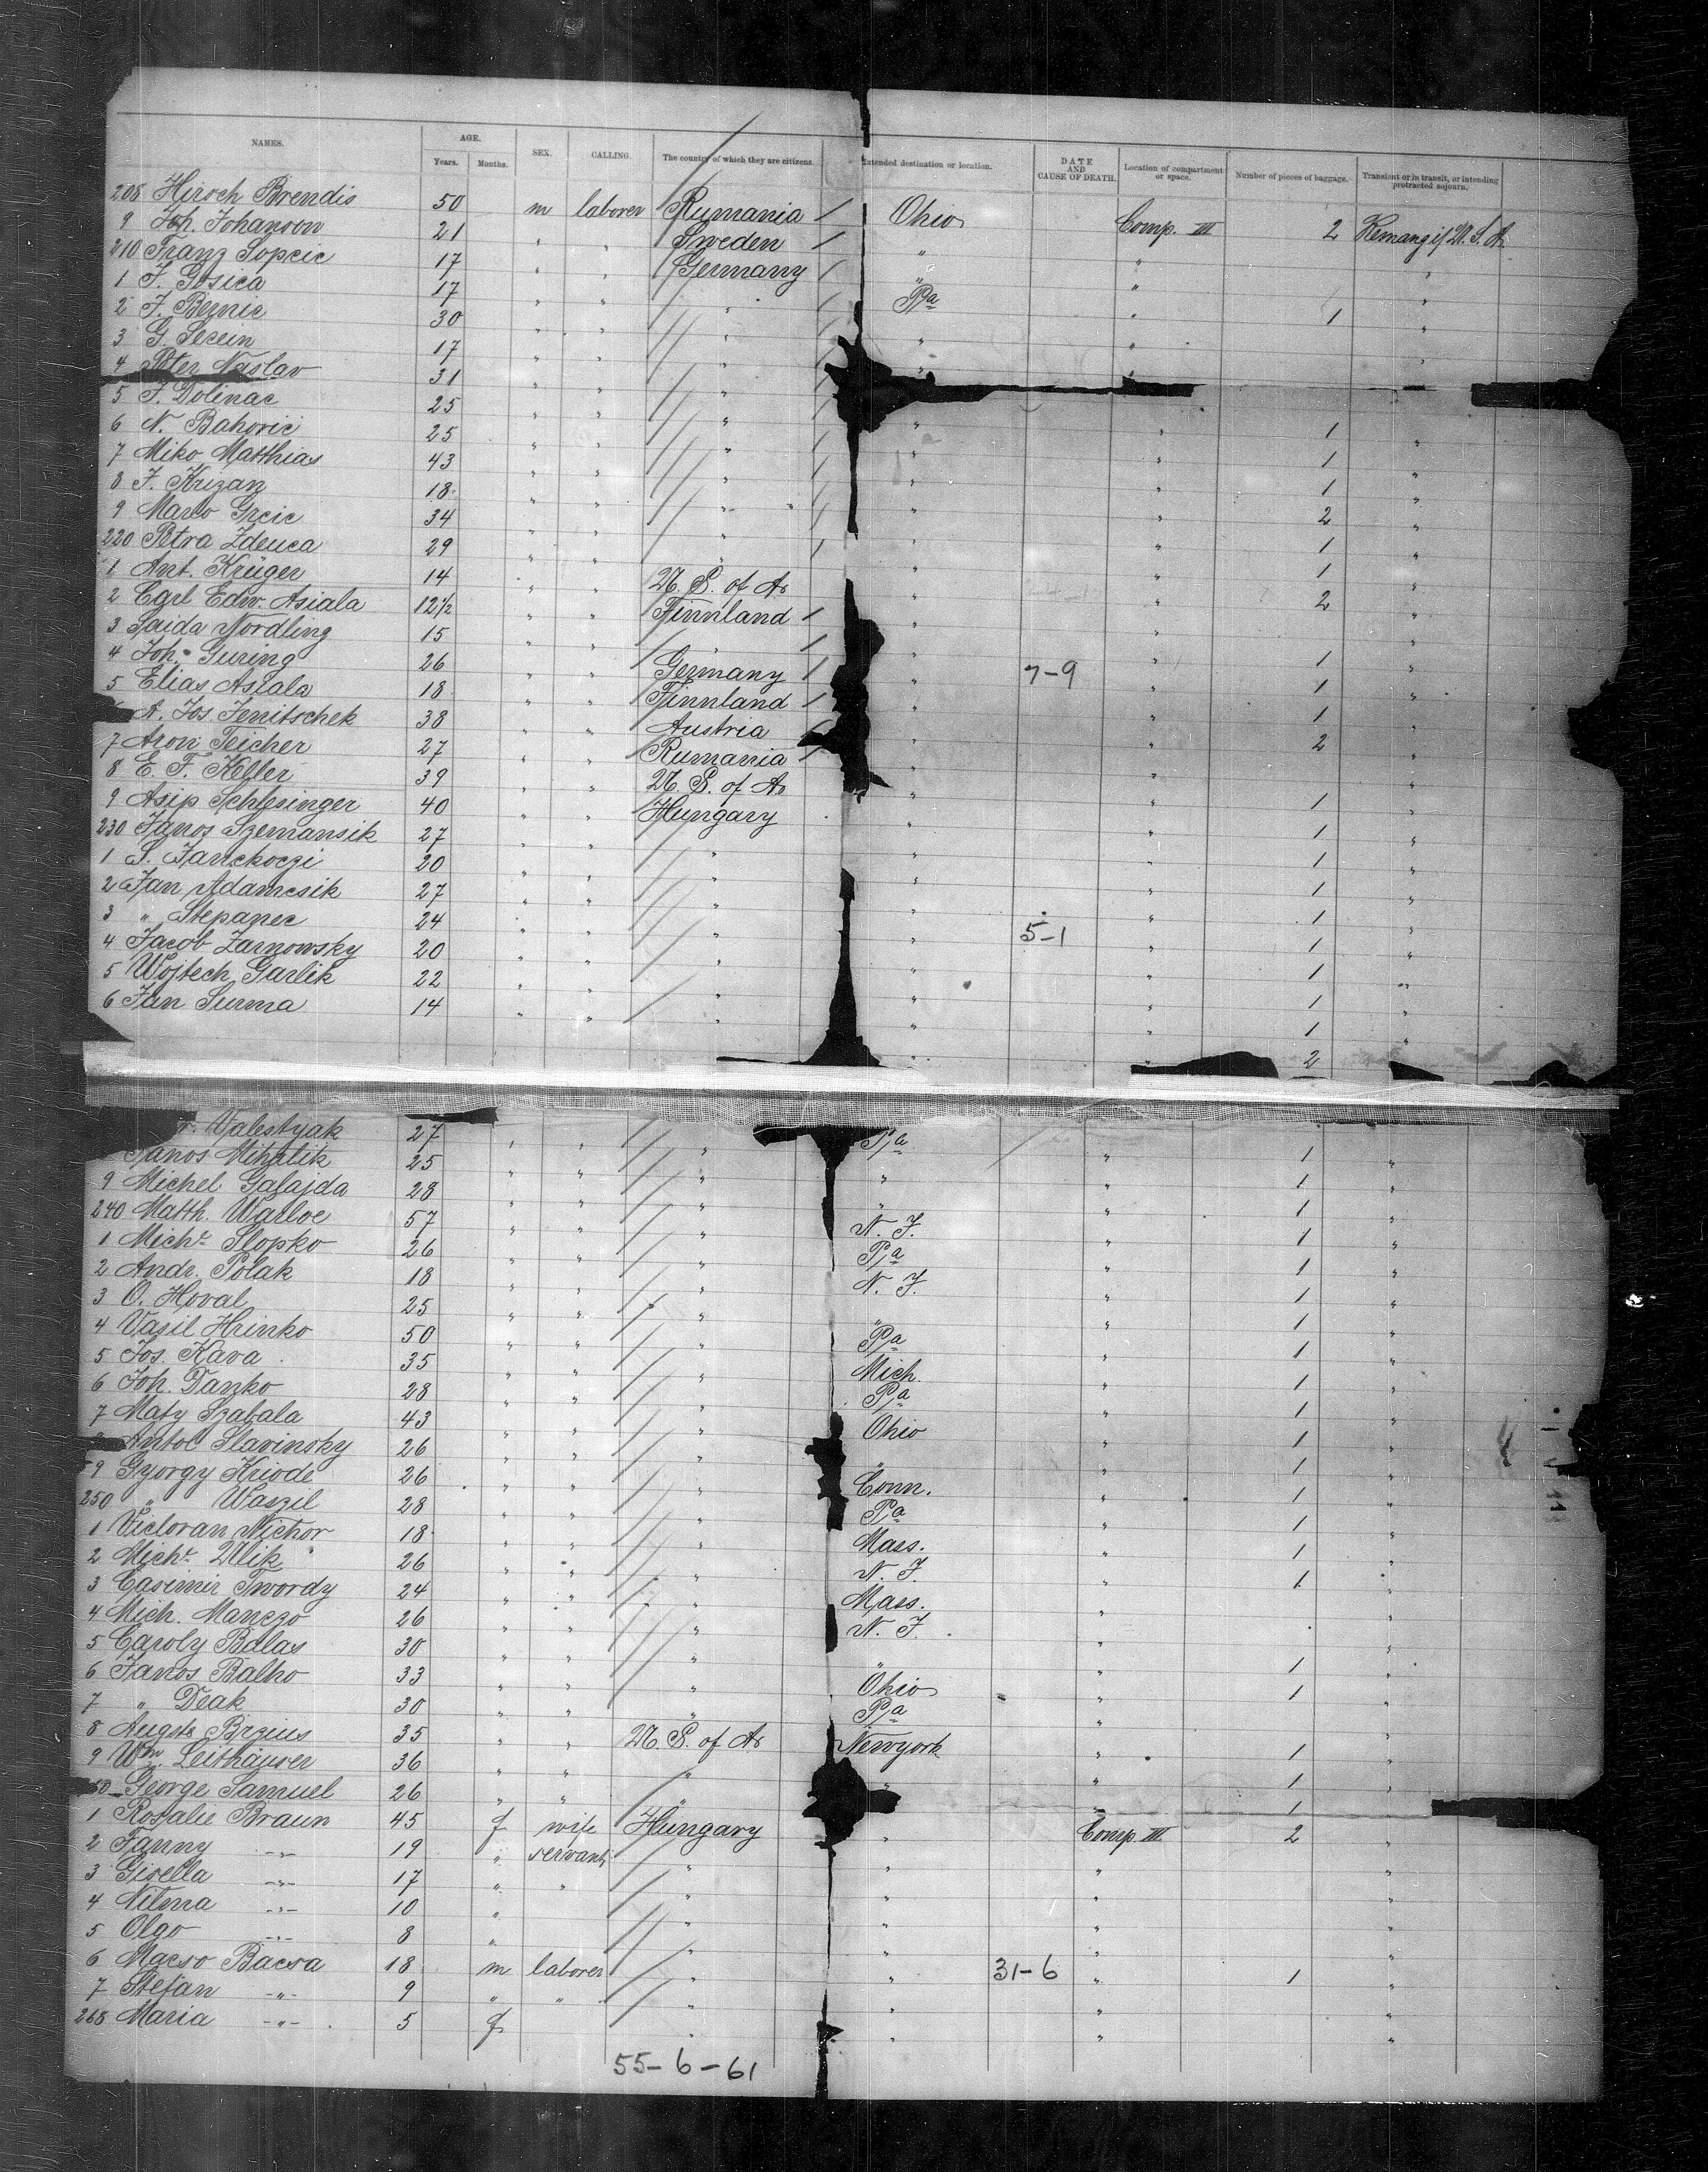 NAMES. AGE. Years. Months. SEX. CALLING. The country of which they are citizens. Intended destination or location. DATE AND CAUSE OF DEATH. Location of compartment or space. Number of pieces of baggage. Transient or in transit, or intending protracted sojourn.
208 Hirsch Brendis 50 m laborer Rumania / Ohio Comp. III 2
9 Joh. Johanson 21 " " Sweden / " "
210 Franz Sopcic 17 " " Germany / " "
1 F. Gosica 17 " " " / Pa "
2 F. Beznic 30 " " " / " " 1 "
3 G. Secein 17 " " " / " " "
4 Peter Naslav 31 " " "
5 F. Dolinac 25 " " "
6 N. Bahoric 25 " " " " " 1 "
7 Miko Matthias 43 " " " " " 1 "
8 F. Krizan 18 " " " " " 1 "
9 Marco Grcic 34 " " " " " 2 "
220 Petra Zdenca 29 " " " " 1 "
1 Ant. Krüger 14 " " U. S. of A. " 1 "
2 Carl Edw. Asiala 12½ " " Finnland / " " 2 "
3 Saida Nordling 15 " " " / " "
4 Joh. Guring 26 " " Germany / " 7-9 " 1 "
5 Elias Asiala 18 " " Finnland / " " 1 "
A. Jos. Jenitschek 38 " " Austria " " 1 "
7 Aron Teicher 27 " " Rumania / " " 2 "
8 E. F. Keller 39 " " U. S. of A. " "
9 Asip Schlesinger 40 " " Hungary " " 1 "
230 Janos Szemansik 27 " " " " " 1 "
1 S. Janckoczi 20 " " " " " 1 "
2 Jan Adamcsik 27 " " " " " 1 "
3 " Stepanec 24 " " " " 5-1 " 1 "
4 Jacob Zarnowsky 20 " " " " " 1 "
5 Wojtech Garlik 22 " " " " " 1 "
6 Jan Surma 14 " " " " " 1 "
" " 1 "
" " 2
Valestyak 27 " " " Pa " 1 "
Janos Mihalik 25 " " " " " 1 "
9 Michel Gasajda 28 " " " " " 1 "
240 Matth. Warloe 57 " " " N. J. " 1 "
1 Michl. Slopko 26 " " " Pa " 1 "
2 Andr. Polak 18 " " " N. J. " 1 "
3 O. Hoval 25 " " " " " 1 "
4 Vasil Hrinko 50 " " " Pa " 1 "
5 Jos. Kava 35 " " " Mich. " 1 "
6 Joh. Danko 28 " " " Pa " 1 "
7 Maty Szabala 43 " " " Ohio " 1 "
Antoc Slavinsky 26 " " " " " 1 "
9 Gyorgy Kriode 26 " " " Conn. " 1 "
250 " Waszil 28 " " " Pa " 1 "
1 Victoran Nichor 18 " " " Mass. " 1 "
2 Michl. Ulik 26 " " " N. J. " 1 "
3 Casimir Twordy 24 " " " Mass. "
4 Mich. Manczo 26 " " " N. J. "
5 Caroly Balas 30 " " " " " 1 "
6 Janos Balko 33 " " " Ohio " 1 "
7 " Deak 30 " " " Pa "
8 Auguste Brzius 35 " " U. S. of A. Newyork " 1 "
9 Wm. Leithäuser 36 " " " " " 1 "
60 George Samuel 26 " " " " 1
1 Rosalie Braun 45 f wife Hungary " Comp. III 2 "
2 Fanny -"- 19 " servant " " " "
3 Gisella -"- 17 " " " " " "
4 Vilma -"- 10 " " " " "
5 Olga -"- 8 " " " " "
6 Macso Bacsa 18 m laborer " " 31-6 " 1 "
7 Stefan -"- 9 " " " " " "
268 Maria -"- 5 f " " " "
55-6-61